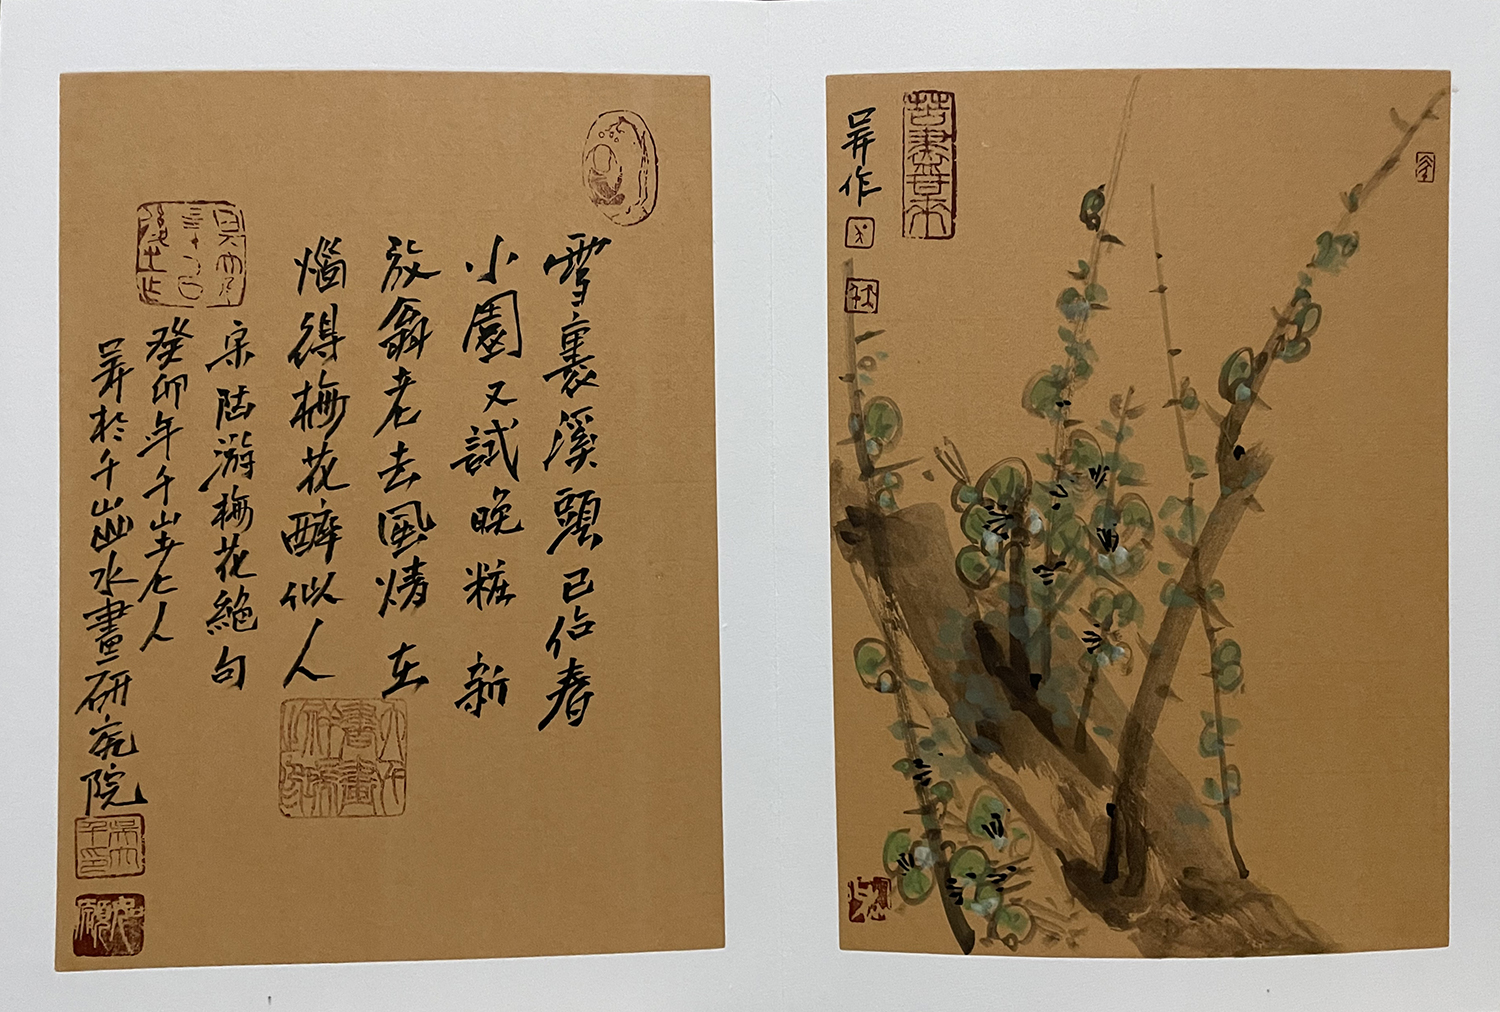 雪裏溪頭已佔春
小園又試晚粧新
放翁老去風情在
惱得梅花醉似人
宋陆游梅花絕句
癸卯年千山老人
於千山山水畫研究院
作